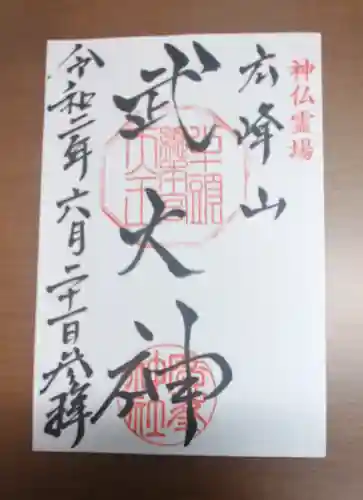 神仏霊場
広峰山
武大神
令和二年六月二十一日参拝